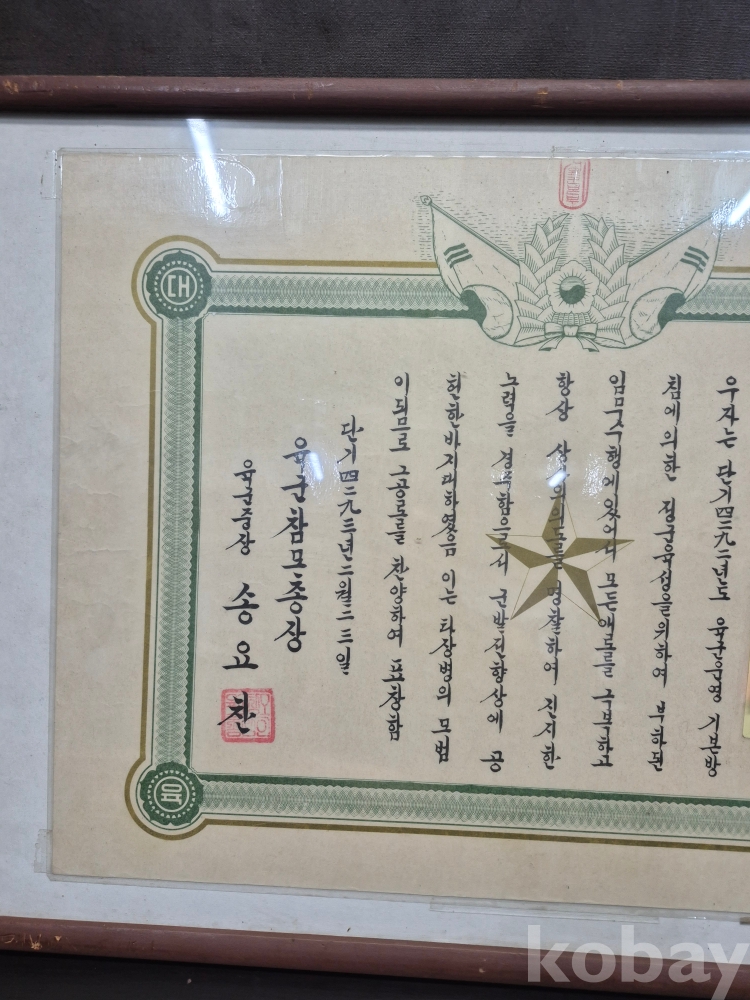 우자는 단기四二九二년도 육군운영 기본방
침에 의한 정군육성을위하여 부하된
임무수행에있어서 모든애로를 극복하고
항상 상사의의도를 명찰하여 진지한
노력을 경주함으로써 군발전향상에 공
헌한바지대하였음 이는 타장병의 모범
이되므로 그공로를 찬양하여 표창함
단기四二九三년二월二三일
육군참모총장
육군중장 송요찬
대
kobay